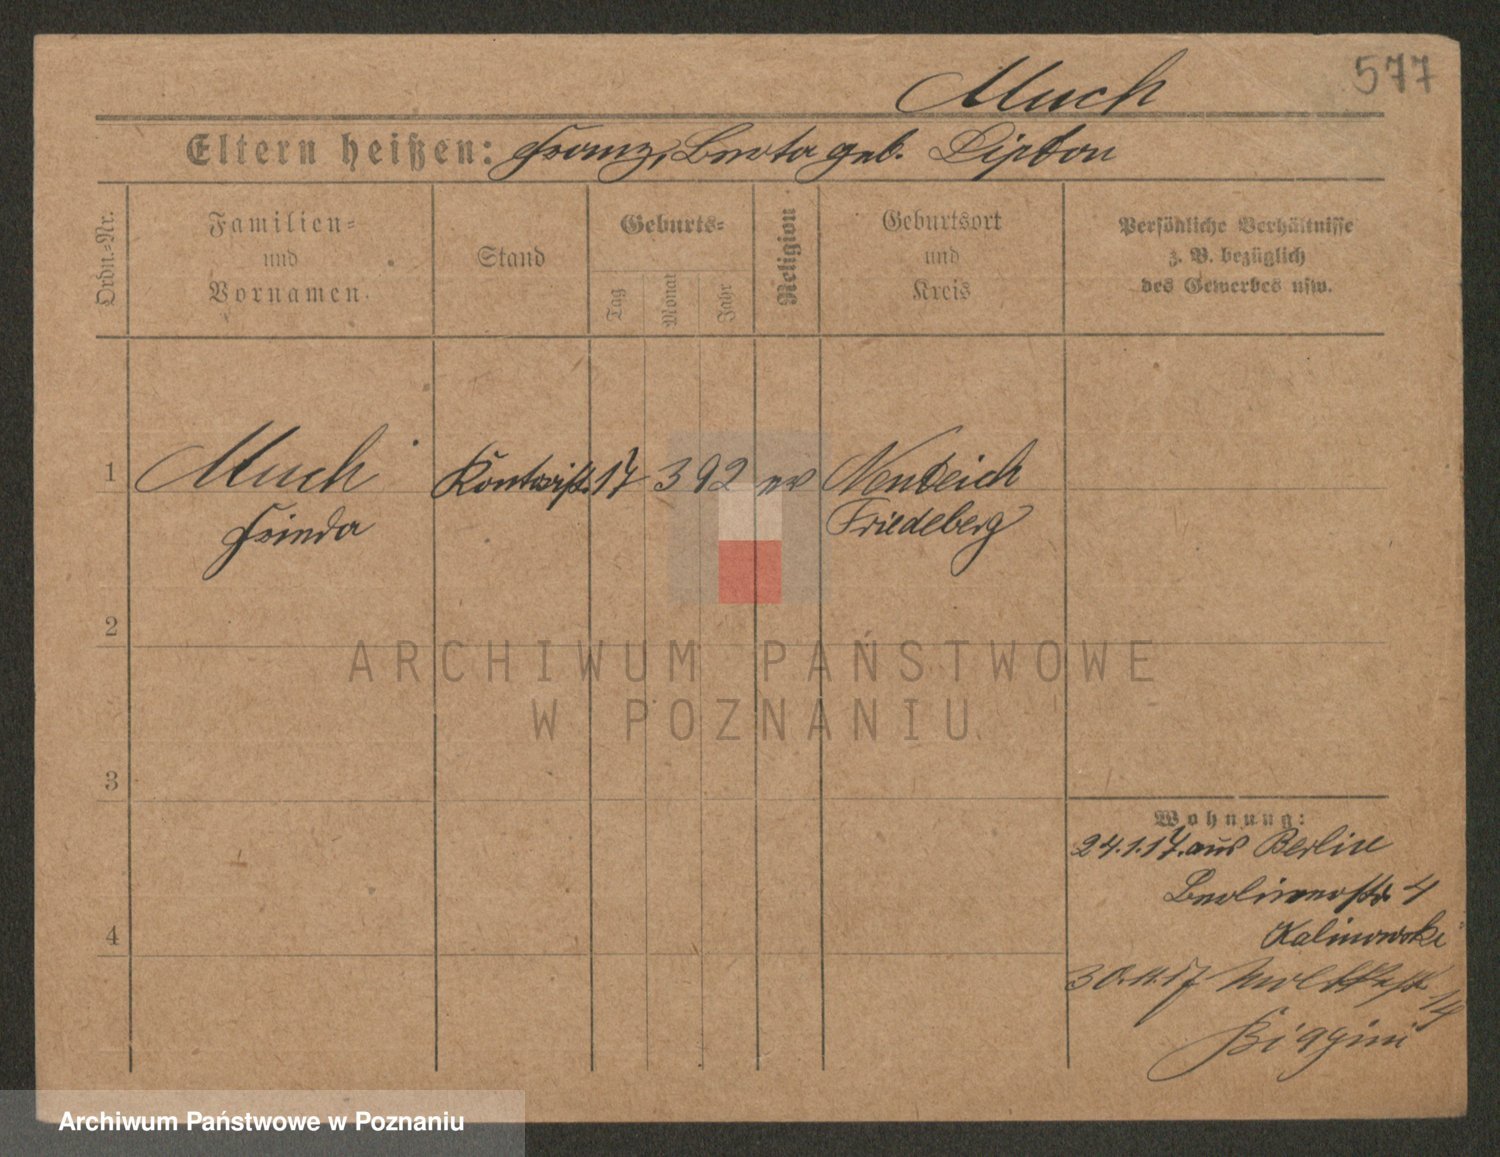 577
Much
Eltern heißen: Franz, Berta geb. Lipton
Ordn.-Nr.
Familien-
und
Vornamen.
Stand
Geburts-
Tag
Monat
Jahr
Religion
Geburtsort
und
Kreis
Persönliche Verhältnisse
z. B. bezüglich
des Gewerbes usw.
1 Much Kontorist. 17 3 92 ev Neuteich
Frieda Friedeberg
2
ARCHIWUM PAŃSTWOWE
W POZNANIU
3
Wohnung:
24.1.17. aus Berlin
Berlinerstr. 4
4
Kalinowski
30.11.17 Moltkestr. 14
Biggini
Archiwum Państwowe w Poznaniu